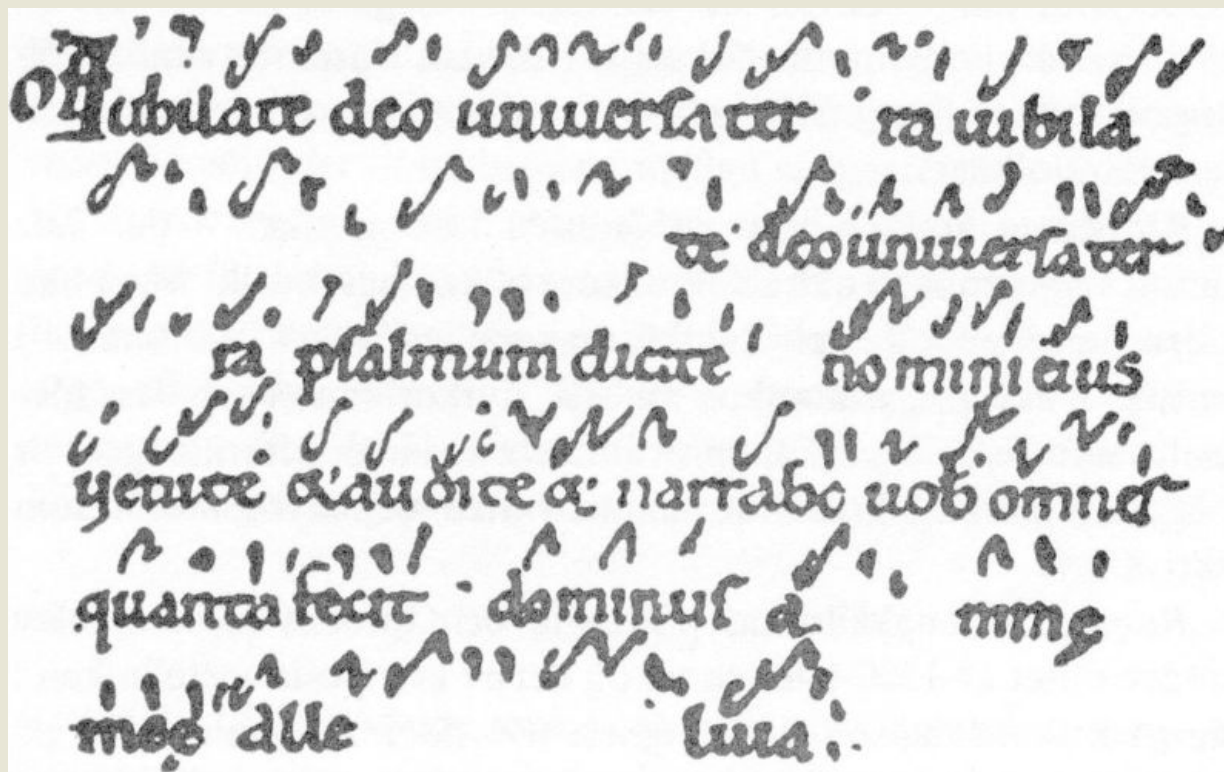 Off Iubilate deo uniuersa ter ra iubila
te deo uniuersa ter
ra psalmum dicite nomini eius
uenite & audite & narrabo uob omnes
quanta fecit dominus a nime
mee alle luia.